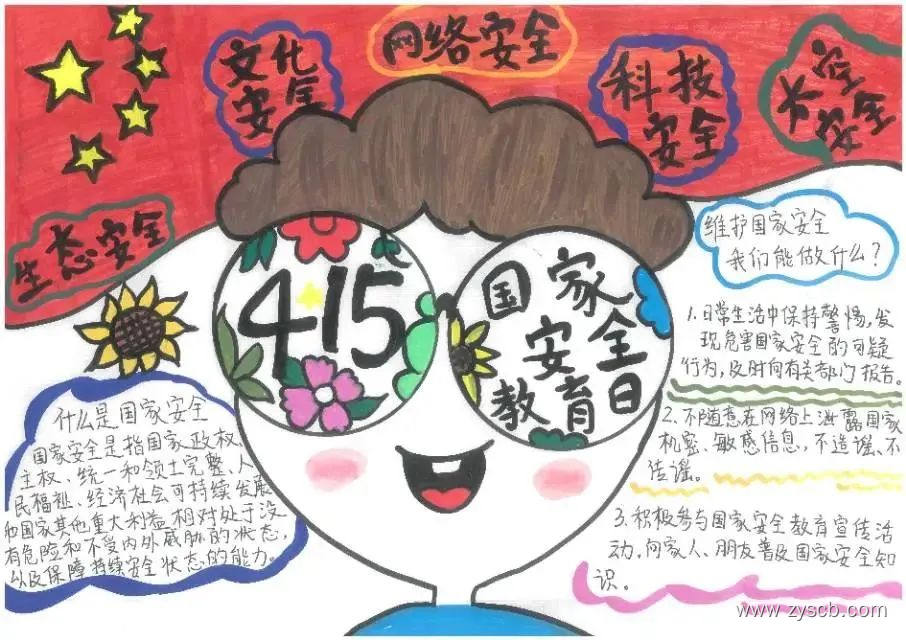 文化
安全
网络安全
科技
安全
太空
安全
生态安全
4·15
国家
安全
教育日
维护国家安全
我们能做什么?
1.日常生活中保持警惕,发
现危害国家安全的可疑
行为,及时向有关部门报告。
2.不随意在网络上泄露国家
机密、敏感信息,不造谣、不
传谣。
3.积极参与国家安全教育宣传活
动,向家人、朋友普及国家安全知
识。
什么是国家安全
国家安全是指国家政权、
主权、统一和领土完整、人
民福祉、经济社会可持续发展
和国家其他重大利益相对处于没
有危险和不受内外威胁的状态,
以及保障持续安全状态的能力。
www.zyscb.com